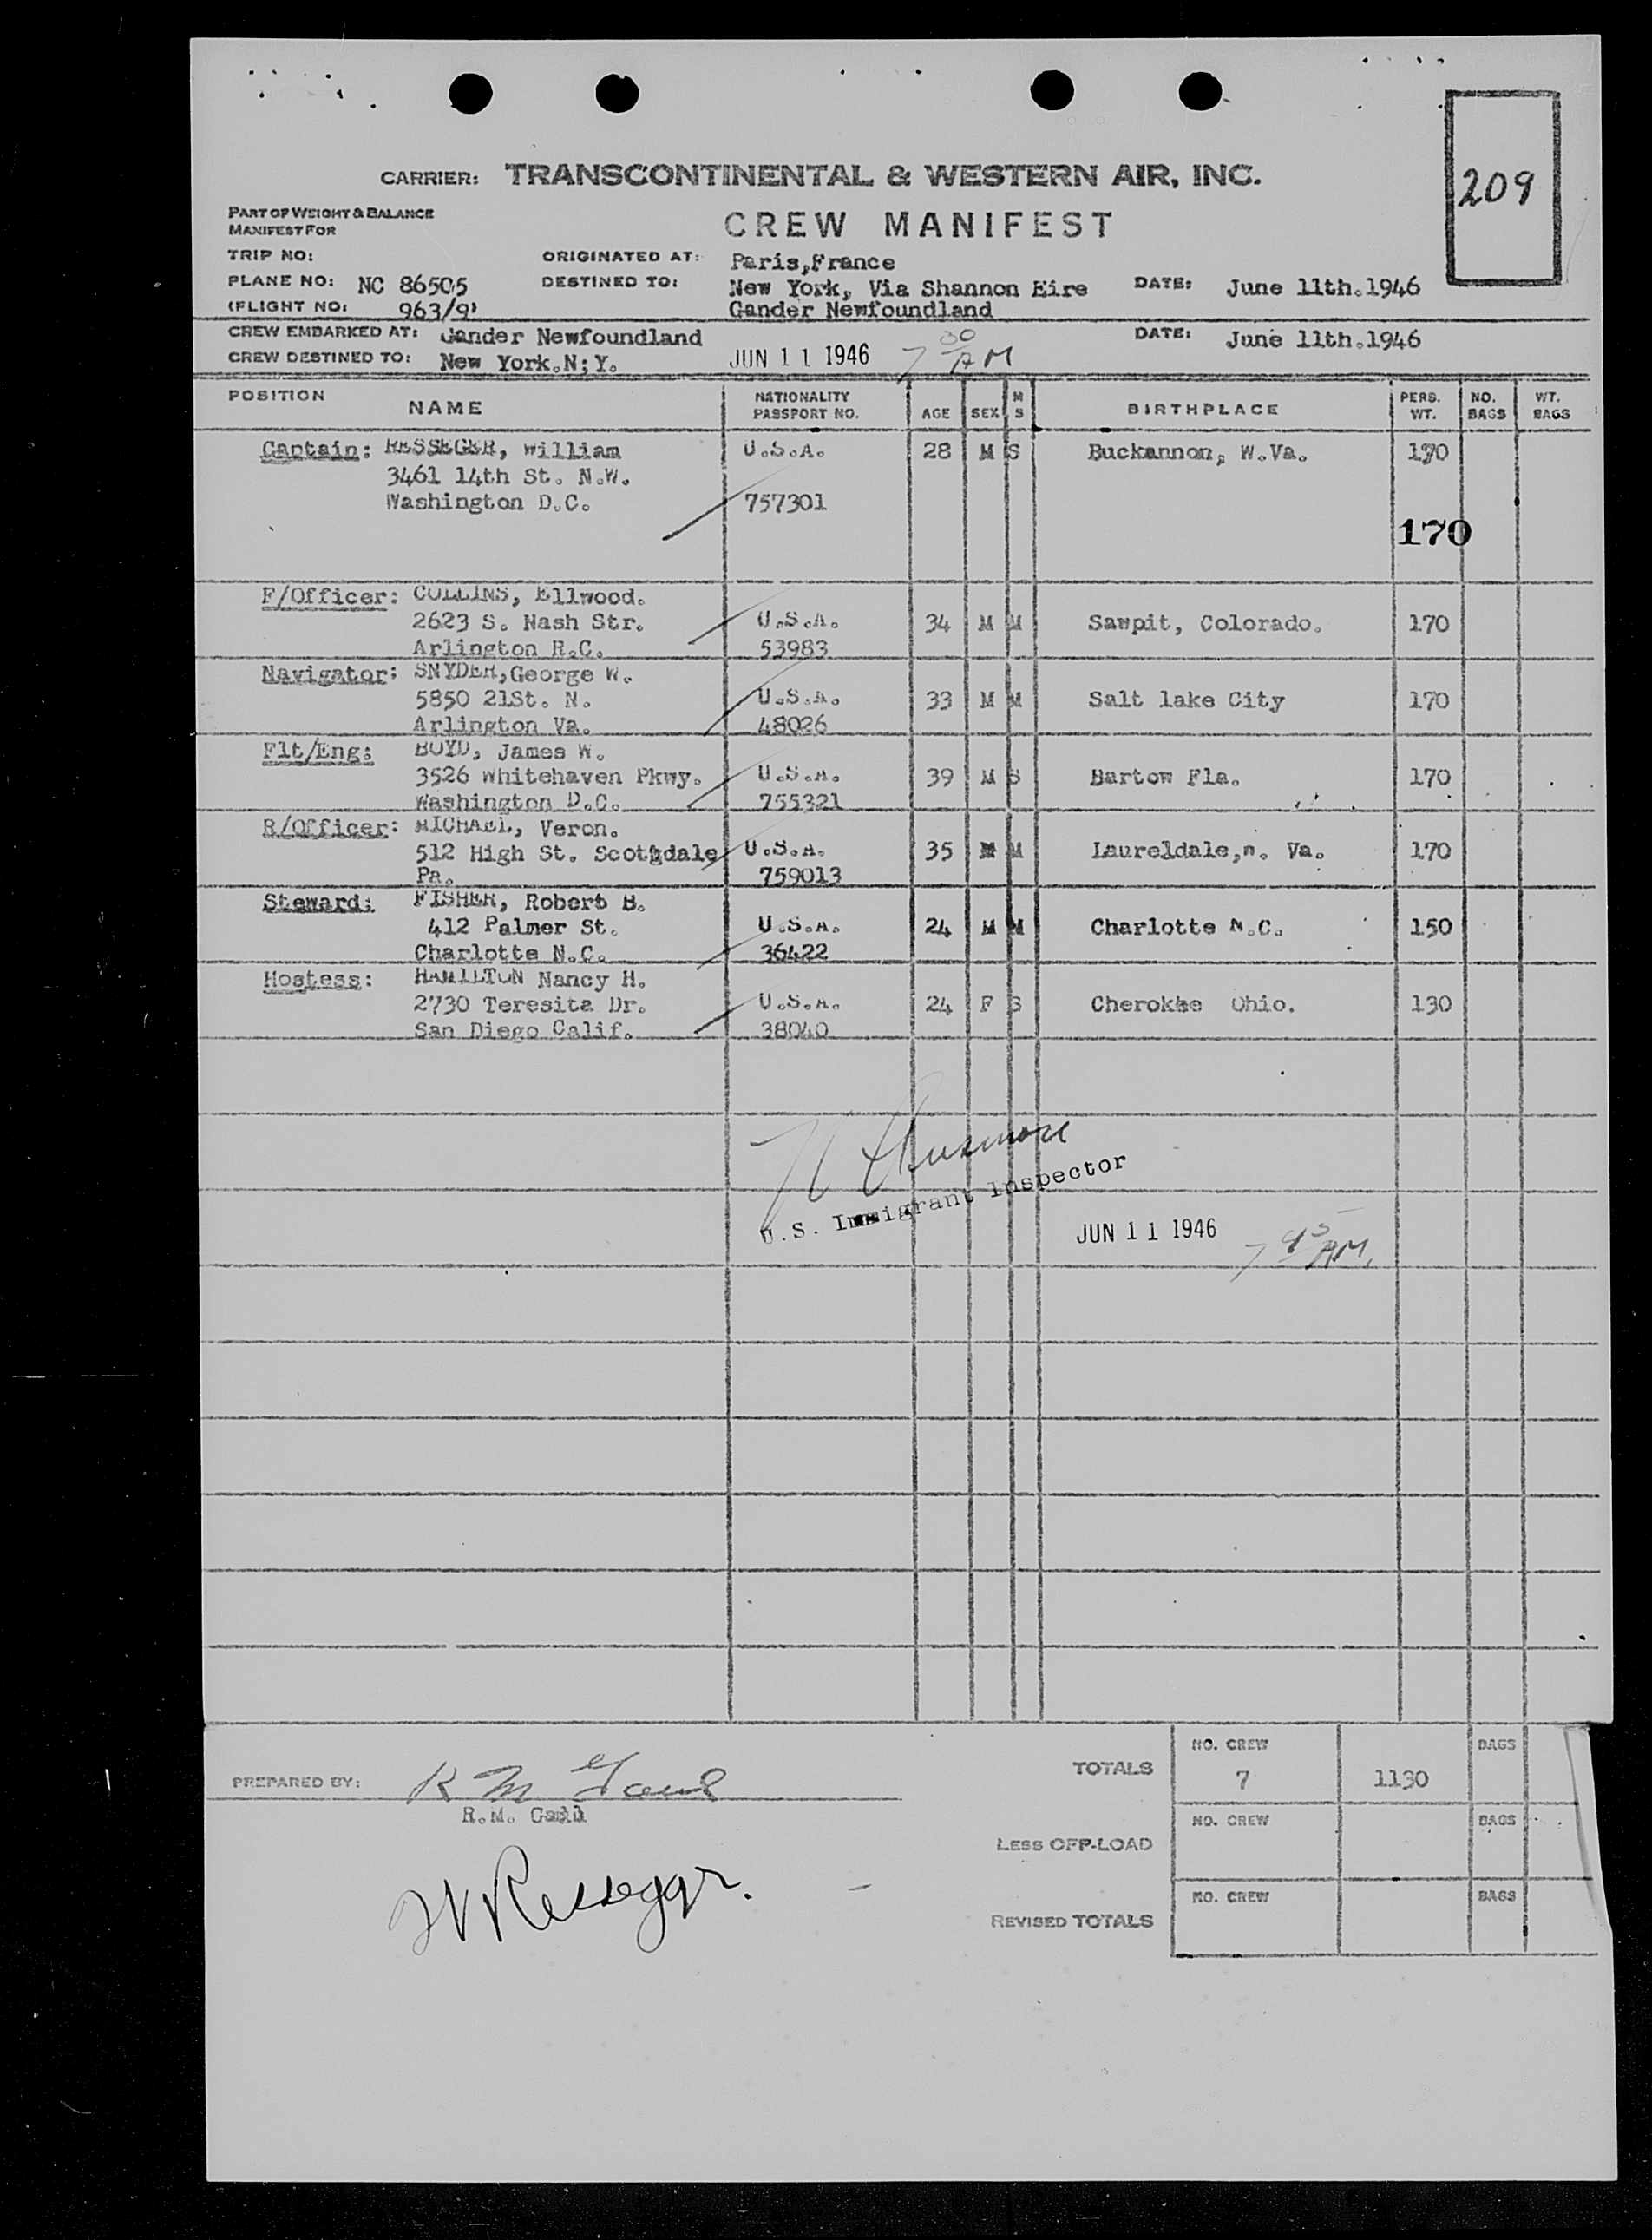 209
CARRIER: TRANSCONTINENTAL & WESTERN AIR, INC.
PART OF WEIGHT & BALANCE
MANIFEST FOR
CREW MANIFEST
TRIP NO:
ORIGINATED AT: Paris,France
PLANE NO: NC 86505
DESTINED TO: New York, Via Shannon Eire
DATE: June 11th.1946
(FLIGHT NO: 963/9
Gander Newfoundland
CREW EMBARKED AT: Gander Newfoundland
DATE: June 11th.1946
CREW DESTINED TO: New York.N;Y.
JUN 11 1946 7 30 AM
POSITION NAME NATIONALITY PASSPORT NO. AGE SEX M S BIRTHPLACE PERS. WT. NO. BAGS WT. BAGS
Captain: RESSEGER, William U.S.A. 28 M S Buckannon, W.Va. 170
3461 14th St. N.W.
Washington D.C. 757301
170
F/Officer: COLLINS, Ellwood.
2623 S. Nash Str. U.S.A. 34 M M Sawpit, Colorado. 170
Arlington R.C. 53983
Navigator: SNYDER,George W.
5850 21St. N. U.S.A. 33 M M Salt lake City 170
Arlington Va. 48026
Flt/Eng: BOYD, James W.
3526 Whitehaven Pkwy. U.S.A. 39 M S Bartow Fla. 170
Washington D.C. 755321
R/Officer: MICHAEL, Veron.
512 High St. Scottdale U.S.A. 35 M M Laureldale,w. Va. 170
Pa. 759013
Steward: FISHER, Robert B.
412 Palmer St. U.S.A. 24 M M Charlotte N.C. 150
Charlotte N.C. 36422
Hostess: HAMILTON Nancy H.
2730 Teresita Dr. U.S.A. 24 F S Cherokee Ohio. 130
San Diego Calif. 38040
U.S. Immigrant Inspector
JUN 11 1946 7 45 AM.
PREPARED BY: R M
R.M.
TOTALS NO. CREW 7 1130 BAGS
LESS OFF-LOAD NO. CREW BAGS
W Resseger.
REVISED TOTALS NO. CREW BAGS